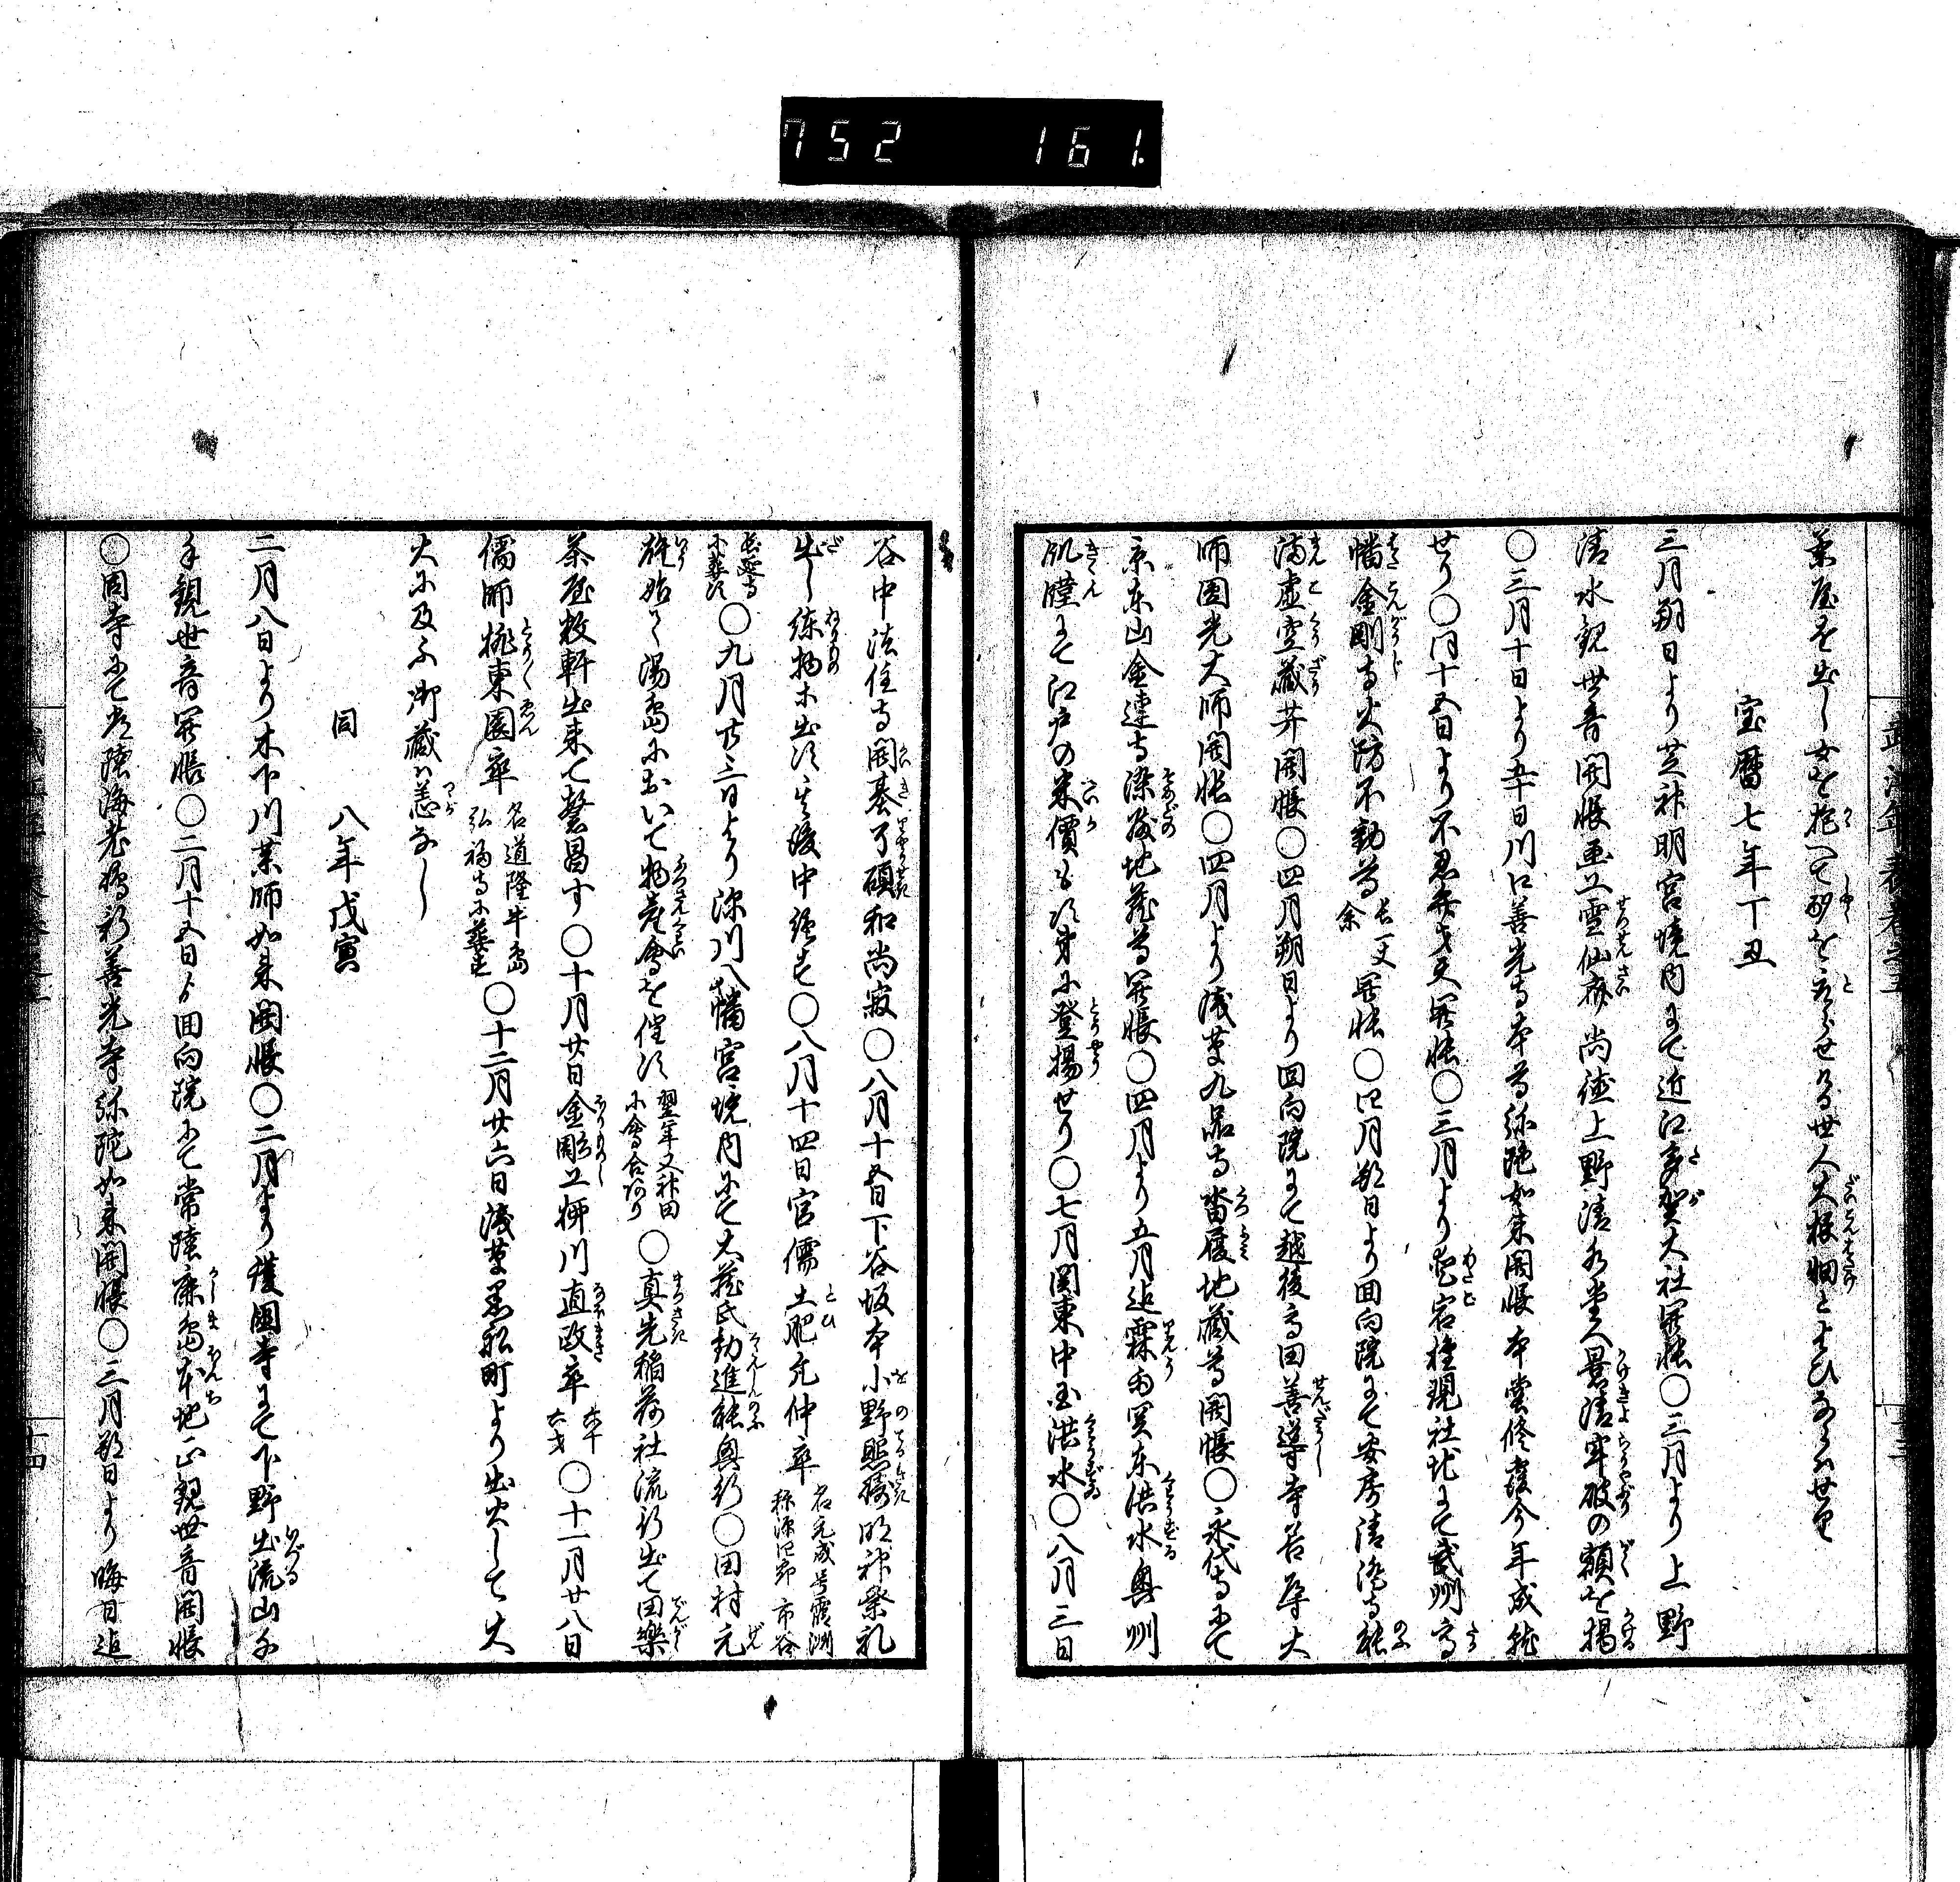 752 161.
茶屋を出し女を抱へて酌をとらせける世人大根畑とよひならハせり
宝暦七年丁丑
三月朔日より芝神明宮境内にて近江多賀大社開帳〇三月より上野
清水観世音開帳画工雪仙斎尚徳上野清水堂へ景清牢破の額を掲
〇三月十日より五十日川口善光寺本尊弥陀如来開帳本堂修復今年成就
せり〇同十五日より不忍弁才天開帳〇三月より愛宕権現社地にて武州高
幡金剛寺火防不動尊長一丈余開帳〇四月朔日より回向院にて安房清澄寺能
満虚空蔵井開帳〇四月朔日より回向院にて越後高田善導寺善導大
師圓光大師開帳〇四月より浅草九品寺沓履地蔵尊開帳〇永代寺にて
京東山金連寺染殿地蔵尊開帳〇四月より五月迄霖雨関东洪水奥州
飢饉にて江戸の米價も次第に登揚せり〇七月関東中国洪水〇八月三日
谷中法住寺開基了碩和尚寂〇八月十五日下谷坂本小野照崎明神祭礼
出し練物等出す其後中絶す〇八月十四日官儒土肥允仲卒名元成号霞洲称源四郎市谷
長延寺に葬す〇九月廿三日より深川八幡宮境内にて大蔵氏勧進能興行〇田村元
雄始て湯島において物産會を催す翌年又神田に會合あり〇真先稲荷社流行出て田樂
茶屋数軒出来て繁昌す〇十月廿日金彫工柳川直政卒六十六才〇十一月廿八日
儒師桃東園卒名道隆牛島弘福寺に葬す〇十二月廿六日浅草黒船町より出火して大
火に及ふ御蔵ハ恙なし
同 八年戊寅
二月八日より木下川薬師如来開帳〇二月より護國寺にて下野出流山千
手観世音開帳〇二月十五日より回向院にて常陸鹿島本地正観世音開帳
〇同寺にて常陸海老島新善光寺弥陀如来開帳〇三月朔日より晦日迄